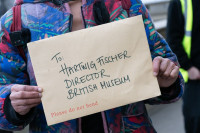 To:
HARTWIG FISCHER
DIRECTOR
BRITISH MUSEUM
Please do not bend